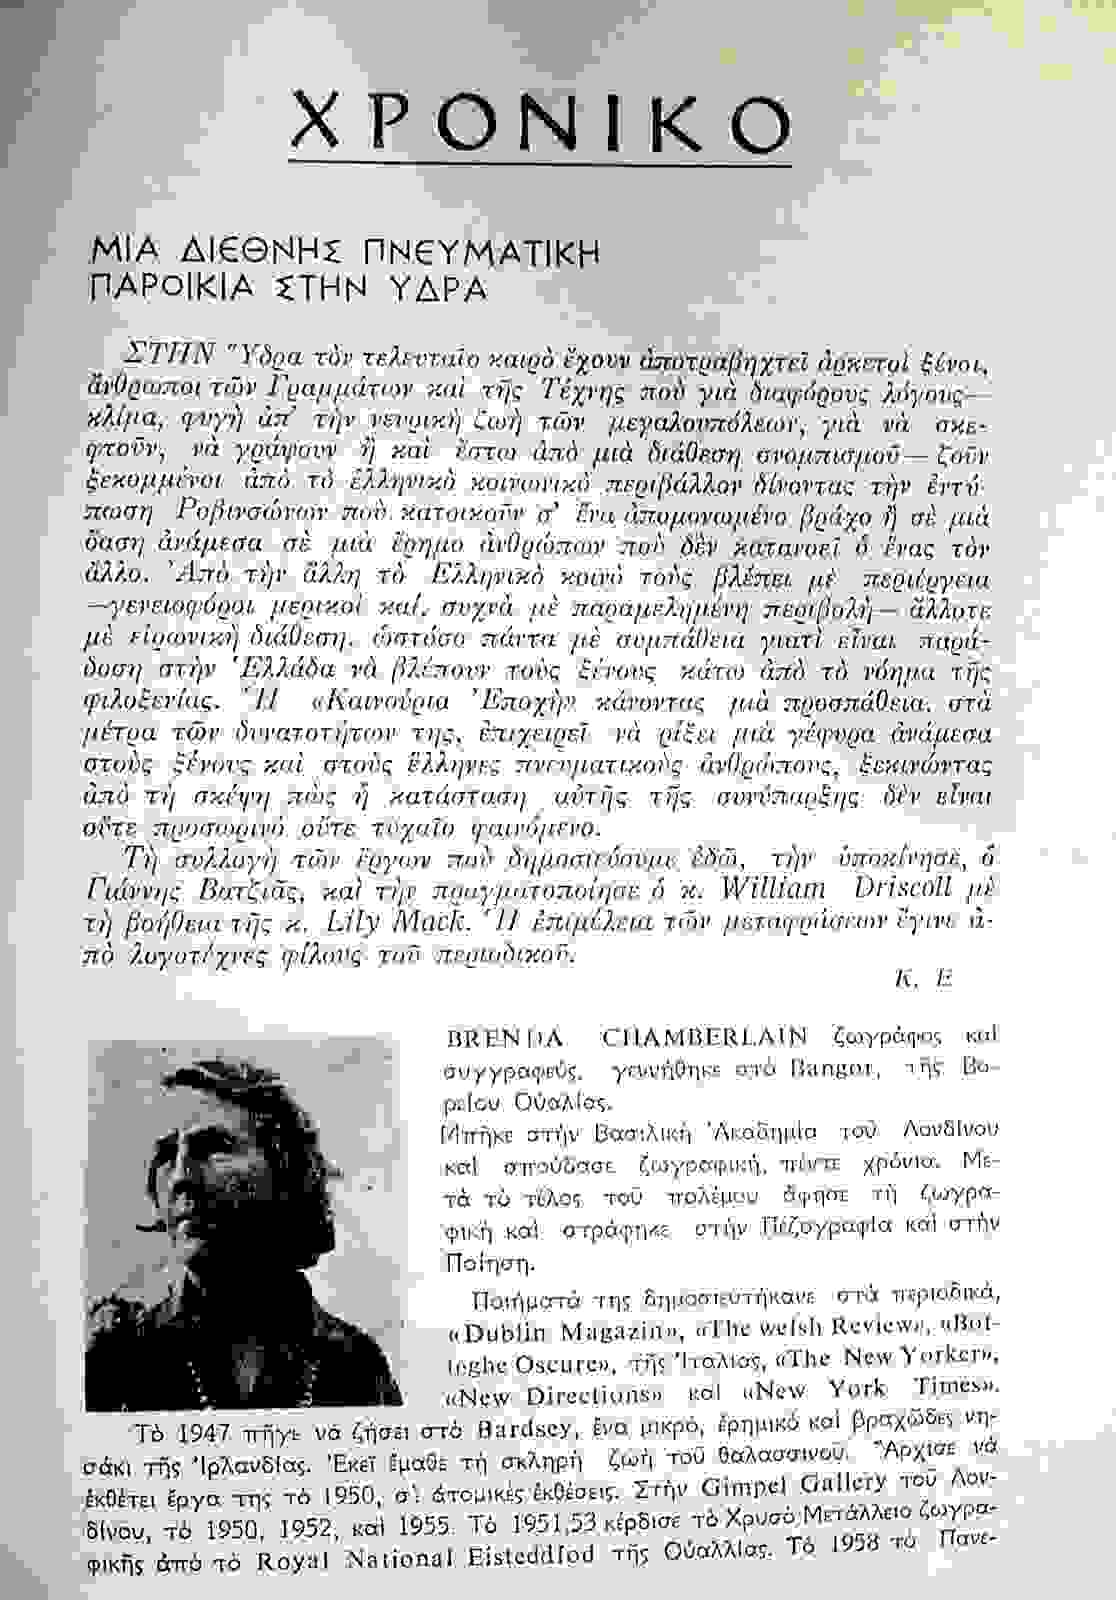 ΧΡΟΝΙΚΟ
ΜΙΑ ΔΙΕΘΝΗΣ ΠΝΕΥΜΑΤΙΚΗ
ΠΑΡΟΙΚΙΑ ΣΤΗΝ ΥΔΡΑ
ΣΤΗΝ Ὕδρα τὸν τελευταῖο καιρὸ ἔχουν ἀποτραβηχτεῖ ἀρκετοὶ ξένοι,
ἄνθρωποι τῶν Γραμμάτων καὶ τῆς Τέχνης ποὺ γιὰ διαφόρους λόγους—
κλίμα, φυγὴ ἀπ' τὴν νευρικὴ ζωὴ τῶν μεγαλουπόλεων, γιὰ νὰ σκε-
φτοῦν, νὰ γράψουν ἢ καὶ ἔστω ἀπὸ μιὰ διάθεση σνομπισμοῦ—ζοῦν
ξεκομμένοι ἀπὸ τὸ ἑλληνικὸ κοινωνικὸ περιβάλλον δίνοντας τὴν ἐντύ-
πωση Ροβινσώνων ποὺ κατοικοῦν σ' ἕνα ἀπομονωμένο βράχο ἢ σὲ μιὰ
ὄαση ἀνάμεσα σὲ μιὰ ἔρημο ἀνθρώπων ποὺ δὲν κατανοεῖ ὁ ἕνας τὸν
ἄλλο. Ἀπὸ τὴν ἄλλη τὸ Ἑλληνικὸ κοινὸ τοὺς βλέπει μὲ περιέργεια
—γενειοφόροι μερικοὶ καί, συχνὰ μὲ παραμελημένη περιβολὴ—ἄλλοτε
μὲ εἰρωνικὴ διάθεση, ὡστόσο πάντα μὲ συμπάθεια γιατὶ εἶναι παρά-
δοση στὴν Ἑλλάδα νὰ βλέπουν τοὺς ξένους κάτω ἀπὸ τὸ νόημα τῆς
φιλοξενίας. Ἡ «Καινούρια Ἐποχὴ» κάνοντας μιὰ προσπάθεια, στὰ
μέτρα τῶν δυνατοτήτων της, ἐπιχειρεῖ νὰ ρίξει μιὰ γέφυρα ἀνάμεσα
στοὺς ξένους καὶ στοὺς ἕλληνες πνευματικοὺς ἀνθρώπους, ξεκινώντας
ἀπὸ τὴ σκέψη πὼς ἡ κατάσταση αὐτῆς τῆς συνύπαρξης δὲν εἶναι
οὔτε προσωρινὸ οὔτε τυχαῖο φαινόμενο.
Τὴ συλλογὴ τῶν ἔργων ποὺ δημοσιεύουμε ἐδῶ, τὴν ὑποκίνησε, ὁ
Γιάννης Βατζιᾶς, καὶ τὴν πραγματοποίησε ὁ κ. William Driscoll μὲ
τὴ βοήθεια τῆς κ. Lily Mack. Ἡ ἐπιμέλεια τῶν μεταφράσεων ἔγινε ἀ-
πὸ λογοτέχνες φίλους τοῦ περιοδικοῦ.
Κ. Ε
BRENDA CHAMBERLAIN ζωγράφος καὶ
συγγραφεύς, γεννήθηκε στὸ Bangor, τῆς Βο-
ρείου Οὐαλίας.
Μπῆκε στὴν Βασιλικὴ Ἀκαδημία τοῦ Λονδίνου
καὶ σπούδασε ζωγραφική, πέντε χρόνια. Με-
τὰ τὸ τέλος τοῦ πολέμου ἄφησε τὴ ζωγρα-
φικὴ καὶ στράφηκε στὴν Πεζογραφία καὶ στὴν
Ποίηση.
Ποιήματά της δημοσιευτήκανε στὰ περιοδικά,
«Dublin Magazin», «The welsh Review», «Bot-
teghe Oscure», τῆς Ἰταλίας, «The New Yorker»,
«New Directions» καὶ «New York Times».
Τὸ 1947 πῆγε νὰ ζήσει στὸ Bardsey, ἕνα μικρό, ἐρημικὸ καὶ βραχῶδες νη-
σάκι τῆς Ἰρλανδίας. Ἐκεῖ ἔμαθε τὴ σκληρὴ ζωὴ τοῦ θαλασσινοῦ. Ἄρχισε νὰ
ἐκθέτει ἔργα της τὸ 1950, σὲ ἀτομικὲς ἐκθέσεις. Στὴν Gimpel Gallery τοῦ Λον-
δίνου, τὸ 1950, 1952, καὶ 1955. Τὸ 1951,53 κέρδισε τὸ Χρυσὸ Μετάλλειο ζωγρα-
φικῆς ἀπὸ τὸ Royal National Eisteddfod τῆς Οὐαλλίας. Τὸ 1958 τὸ Πανε-